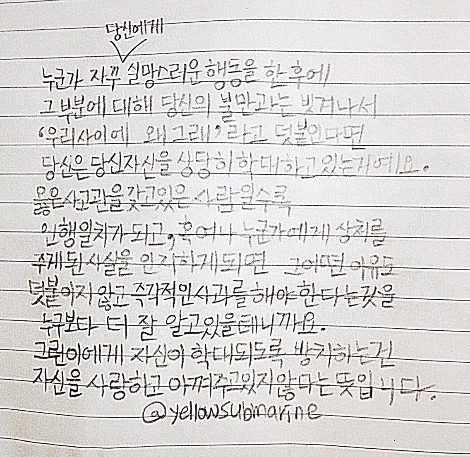 당신에게
누군가 자꾸 실망스러운 행동을 한 후에
그 부분에 대해 당신의 불만과는 빗겨나서
'우리사이에 왜그래' 라고 덧붙인다면
당신은 당신자신을 상당히 학대하고 있는거예요.
옳은 사고관을 갖고있은 사람일수록
언행일치가 되고, 혹여나 누군가에게 상처를
주게 된 사실을 인지하게되면 그어떤 이유도
덧붙이지 않고 즉각적인사과를 해야한다는것을
누구보다 더 잘 알고있을테니까요.
그런이에게 자신이 학대되도록 방치하는건
자신을 사랑하고 아껴주고있지않다는 뜻입니다.
@yellowsubmarine